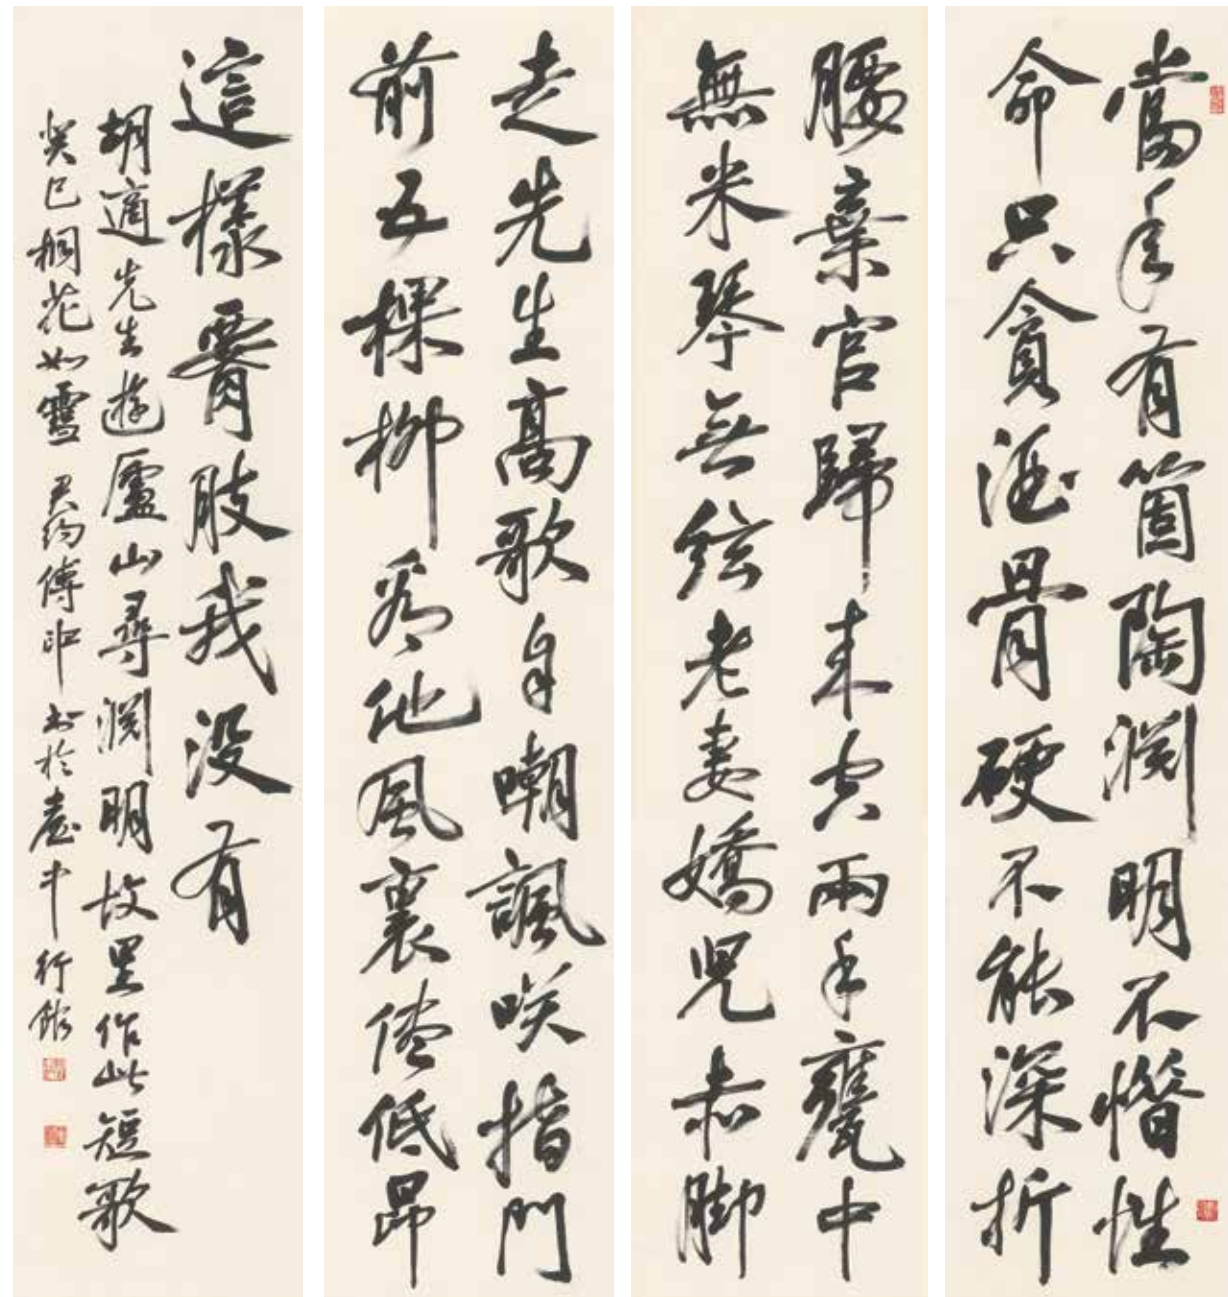 當年有箇陶淵明不惜性
命只貪酒骨硬不能深折
腰棄官歸來空兩手甕中
無米琴無絃老妻嬌兒赤脚
走先生高歌自嘲諷咲指門
前五棵柳看他風裏儘低昂
這樣腰肢我沒有
胡適先生遊廬山尋淵明故里作此短歌
癸巳桐花如雪 君約傅申書於臺中行館